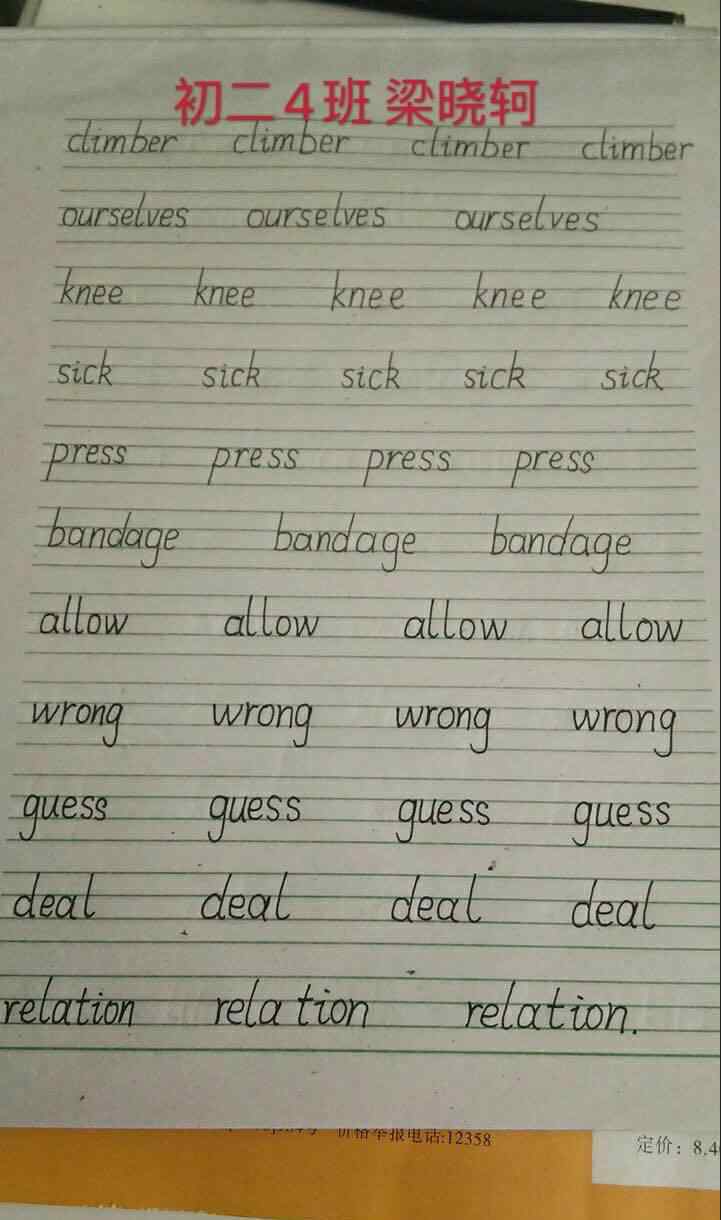 初二4班 梁晓轲
climber climber climber climber
ourselves ourselves ourselves
knee knee knee knee knee
sick sick sick sick sick
press press press press
bandage bandage bandage
allow allow allow allow
wrong wrong wrong wrong
guess guess guess guess
deal deal deal deal
relation relation relation.
价格举报电话:12358
定价：8.4